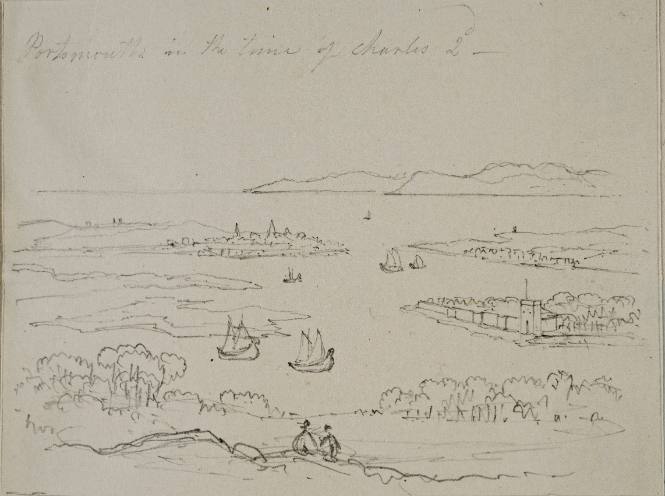 Portsmouth in the time of Charles 2d —